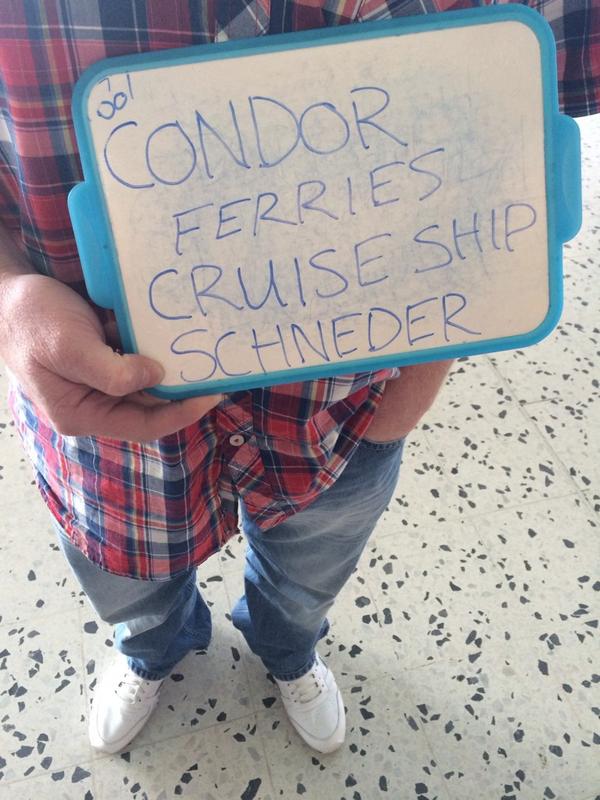 CONDOR
FERRIES
CRUISE SHIP
SCHNEDER